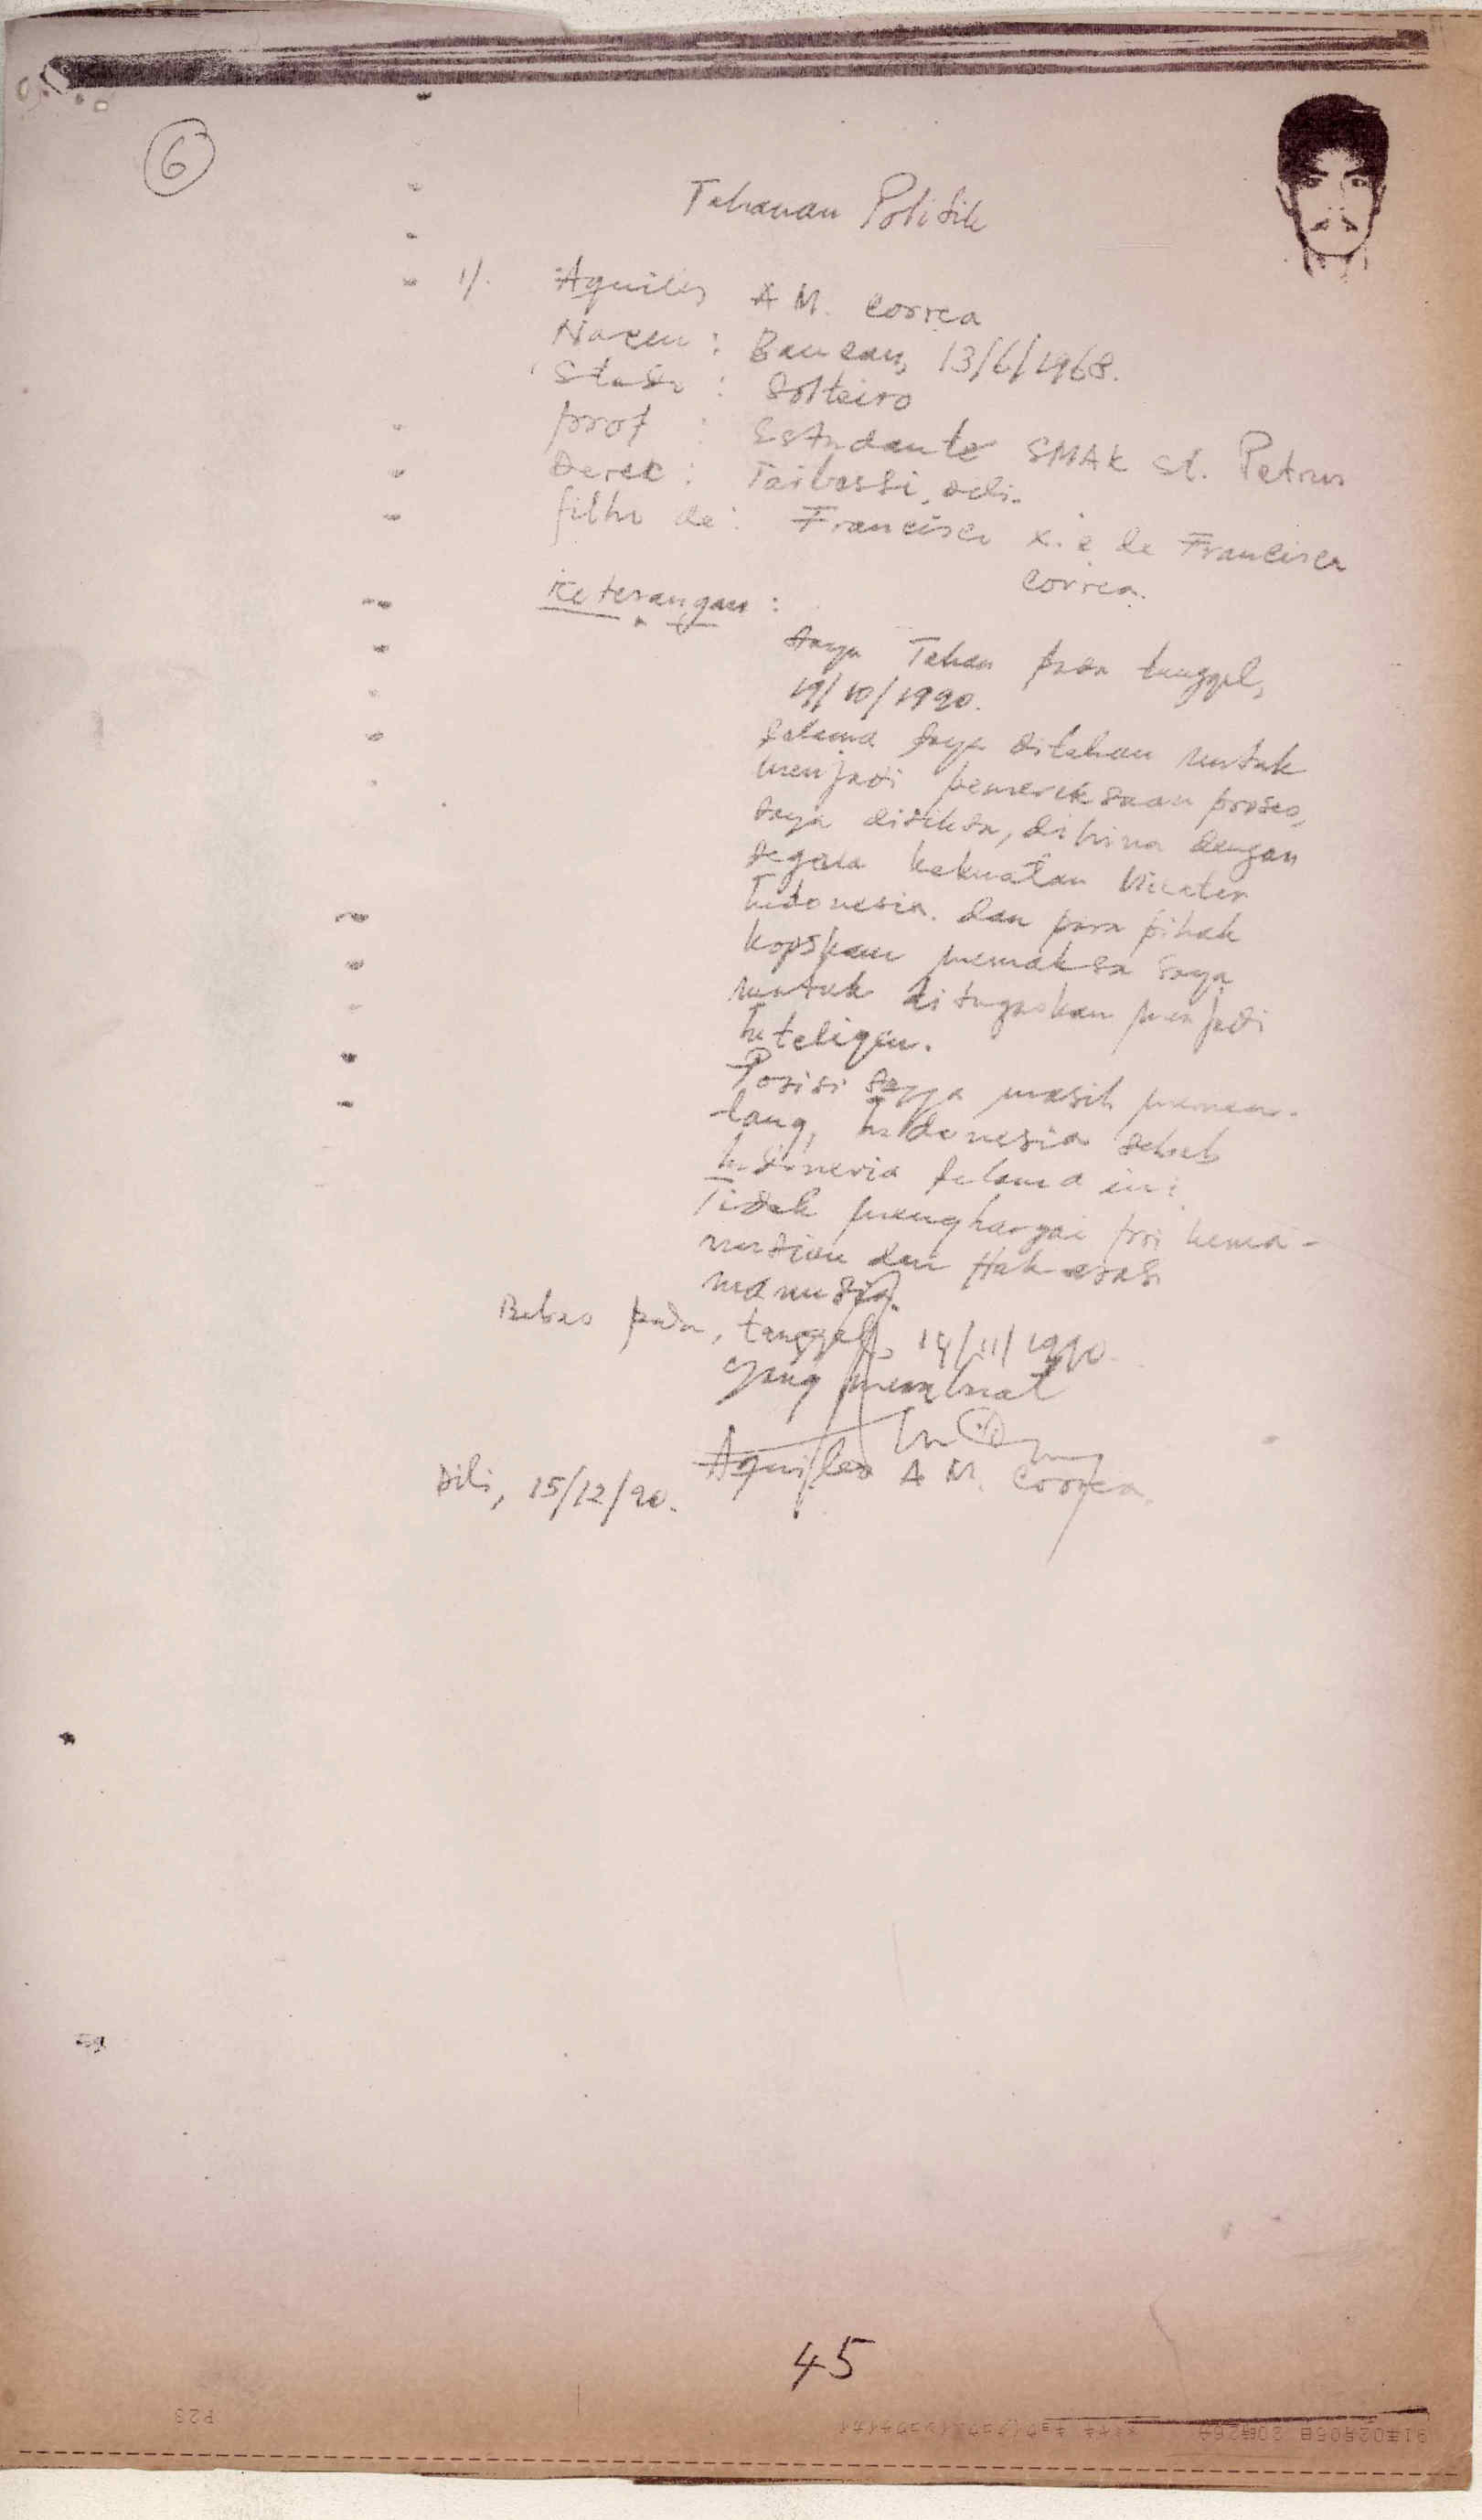 6
Tahanan Politik
1/. Aquiles A M. Correa
Naceu : Baucau, 13/6/1968.
: Solteiro
prof : Estudante SMAK St. Petrus
Derec : Taibessi, Dili.
filho de : Francisco X. e de Francisca
Correa.
Keterangan :
Saya Tahan pada tanggal,
19/10/1990.
Selama saya ditahan untuk
menjadi pemereksaan proses,
saya disiksa, dihina dengan
segala kekuatan
Indonesia. dan para pihak
kopskam memaksa saya
untuk ditugaskan menjadi
Inteligen.
Posisi saya masih menen-
tang, Indonesia sebab
Indonesia selama ini
Tidak menghargai pri kema-
nusian dan Hak asasi
manusia.
Bebas pada, tanggal, 14/11/1990.
Yang membuat
Aquiles A M. Correa.
Dili, 15/12/90.
45
P23
91年02月05日 20時26分